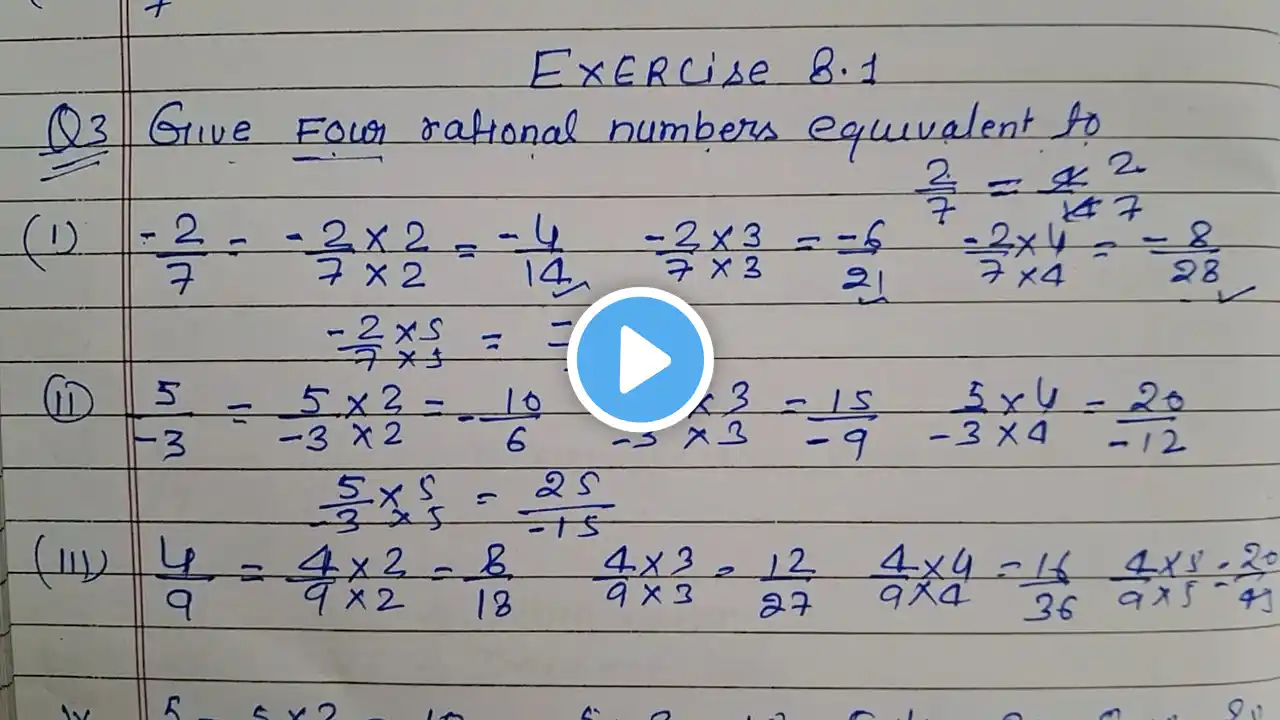 7
Exercise 8.1
Q3 Give Four rational numbers equivalent to
2/7 = 4 2/14 7
(I) -2/7 = -2×2/7×2 = -4/14 -2×3/7×3 = -6/21 -2×4/7×4 = -8/28
-2×5/7×5 = -
(II) 5/-3 = 5×2/-3×2 = -10/6 ×3/-3×3 = 15/-9 5×4/-3×4 = 20/-12
5×5/-3×5 = 25/-15
(III) 4/9 = 4×2/9×2 = 8/18 4×3/9×3 = 12/27 4×4/9×4 = 16/36 4×5/9×5 = 20/45
IV 5 - 5×2 = 10